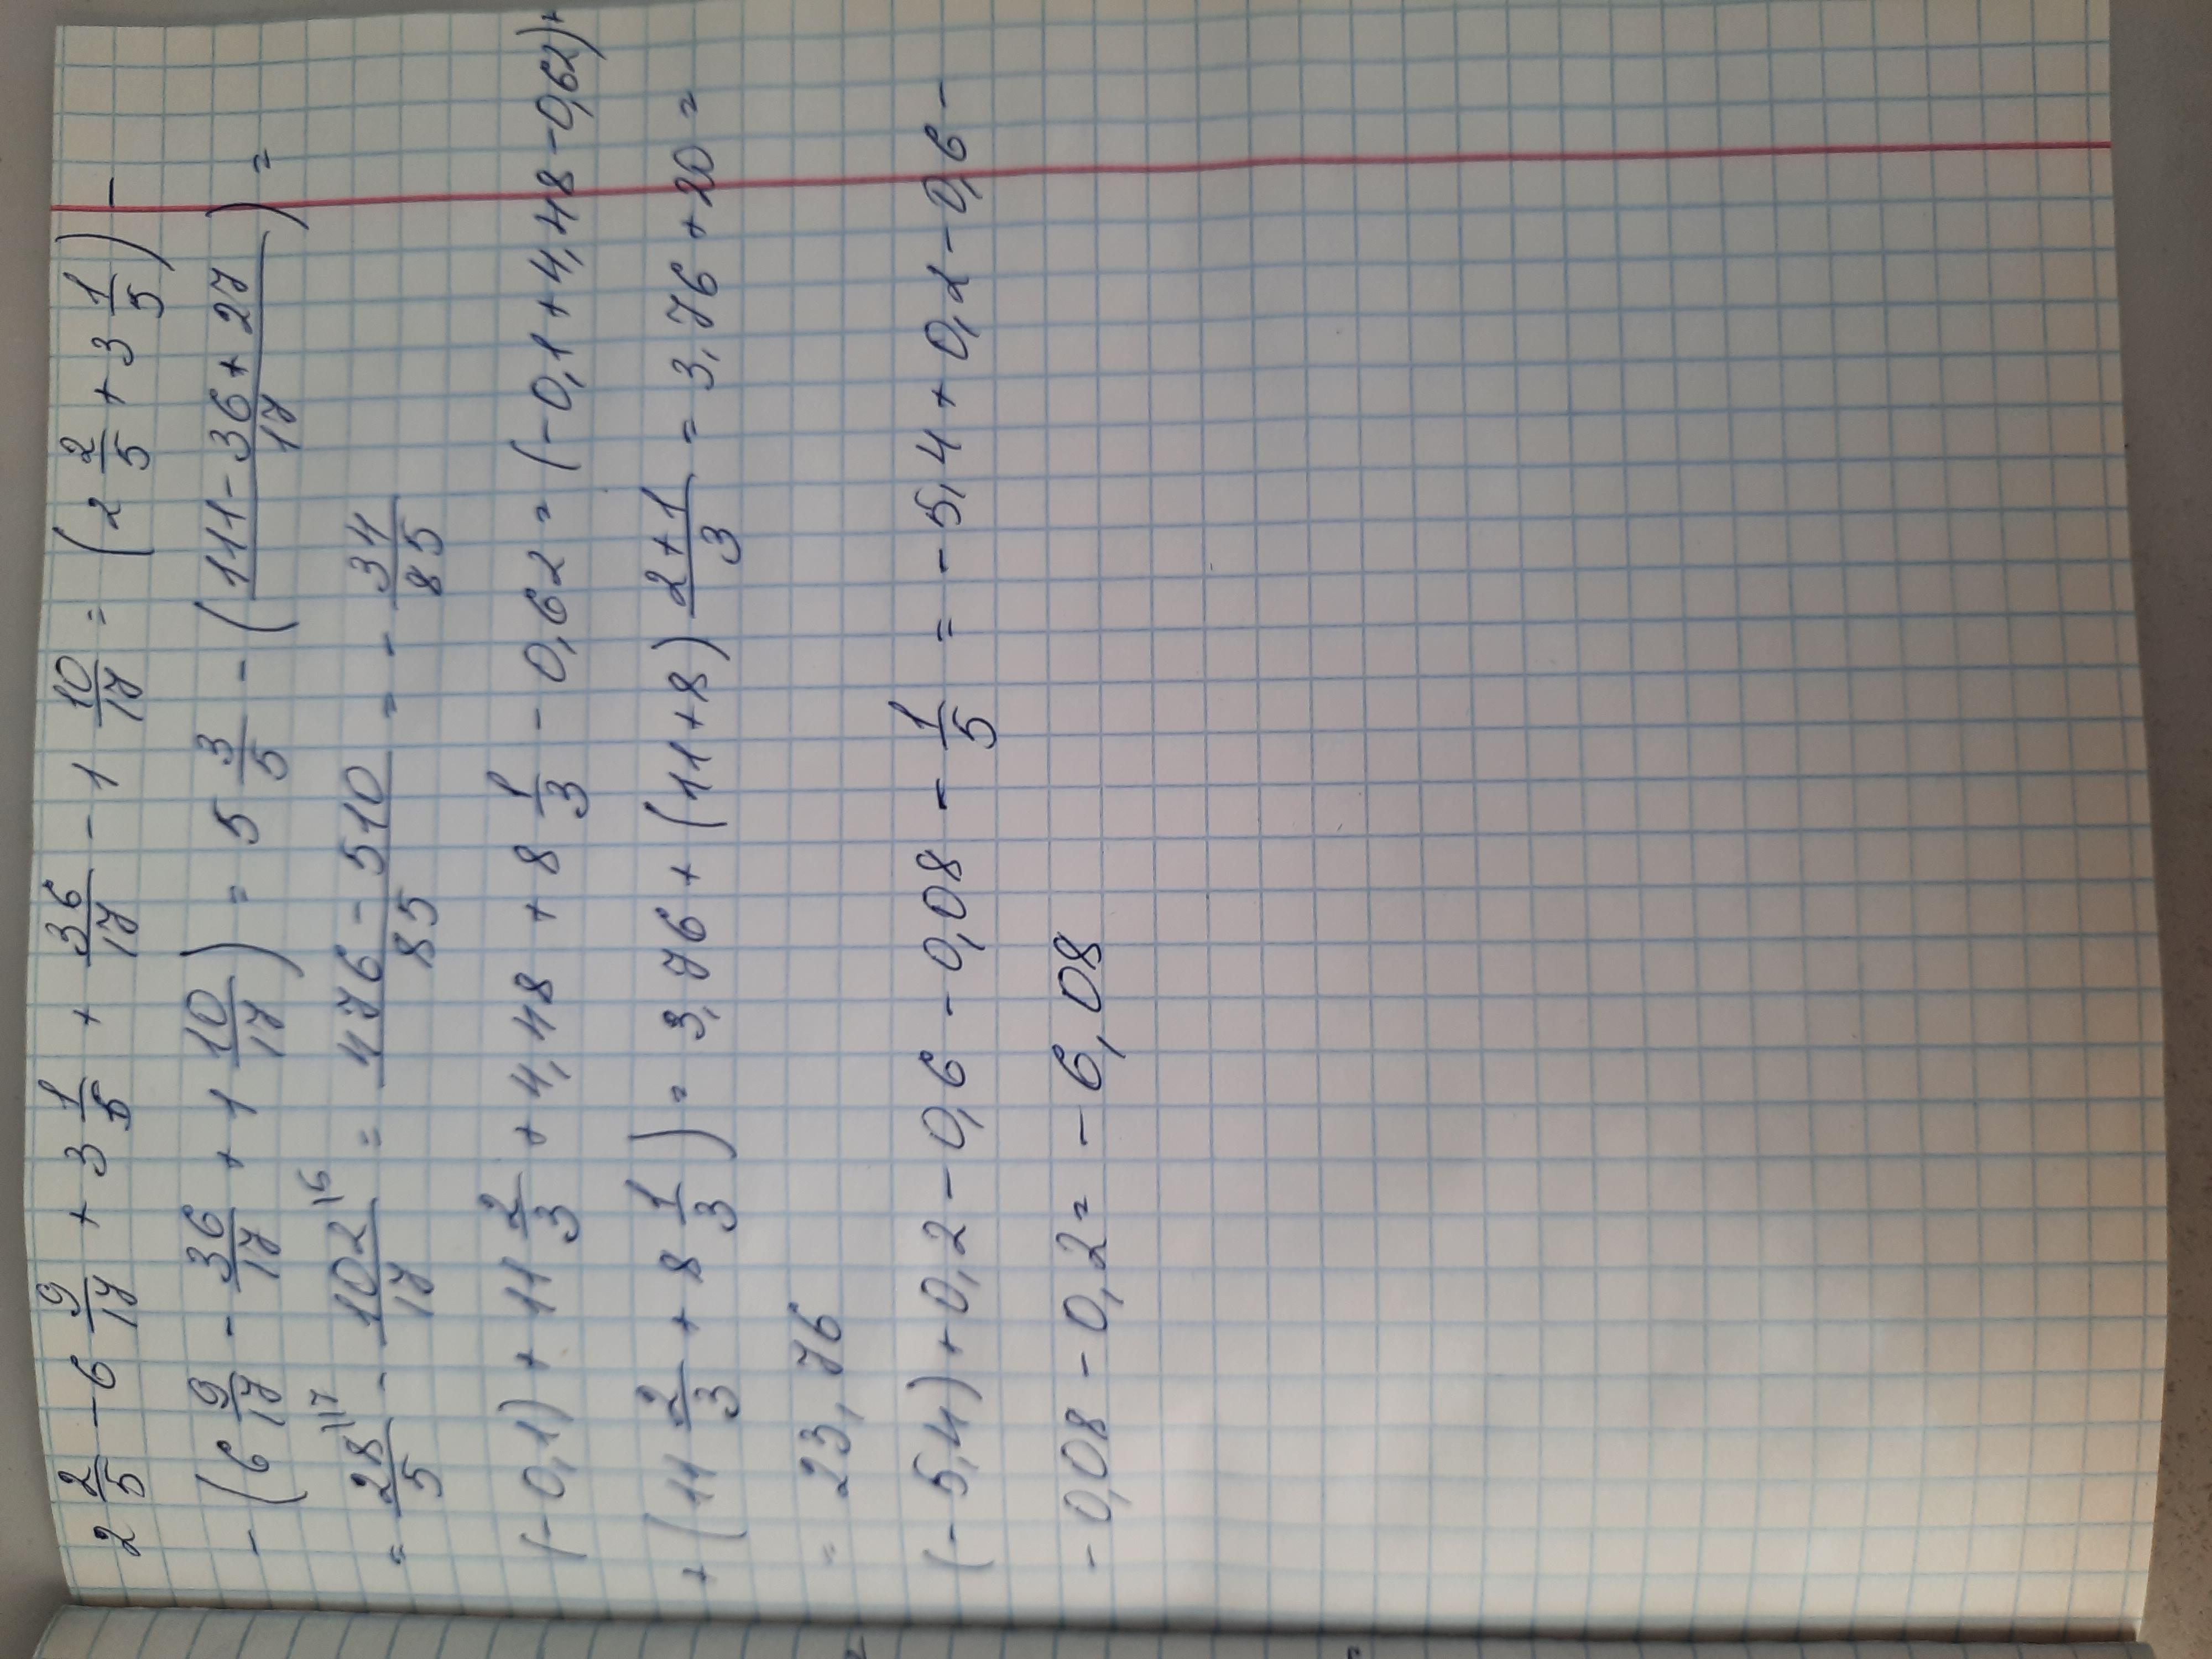 2 2/5 - 6 9/17 + 3 1/5 + 36/17 - 1 10/17 = (2 2/5 + 3 1/5) -
- (6 9/17 - 36/17 + 1 10/17) = 5 3/5 - (111 - 36 + 27 / 17) =
= 28/5 |17 - 102/17 |5 = 476 - 510 / 85 = - 34/85
(-0,1) + 11 2/3 + 4,48 + 8 1/3 - 0,62 = (-0,1 + 4,48 - 0,62) +
+ (11 2/3 + 8 1/3) = 3,76 + (11+8) 2+1/3 = 3,76 + 20 =
= 23,76
(-5,4) + 0,2 - 0,6 - 0,08 - 1/5 = - 5,4 + 0,2 - 0,6 -
- 0,08 - 0,2 = - 6,08